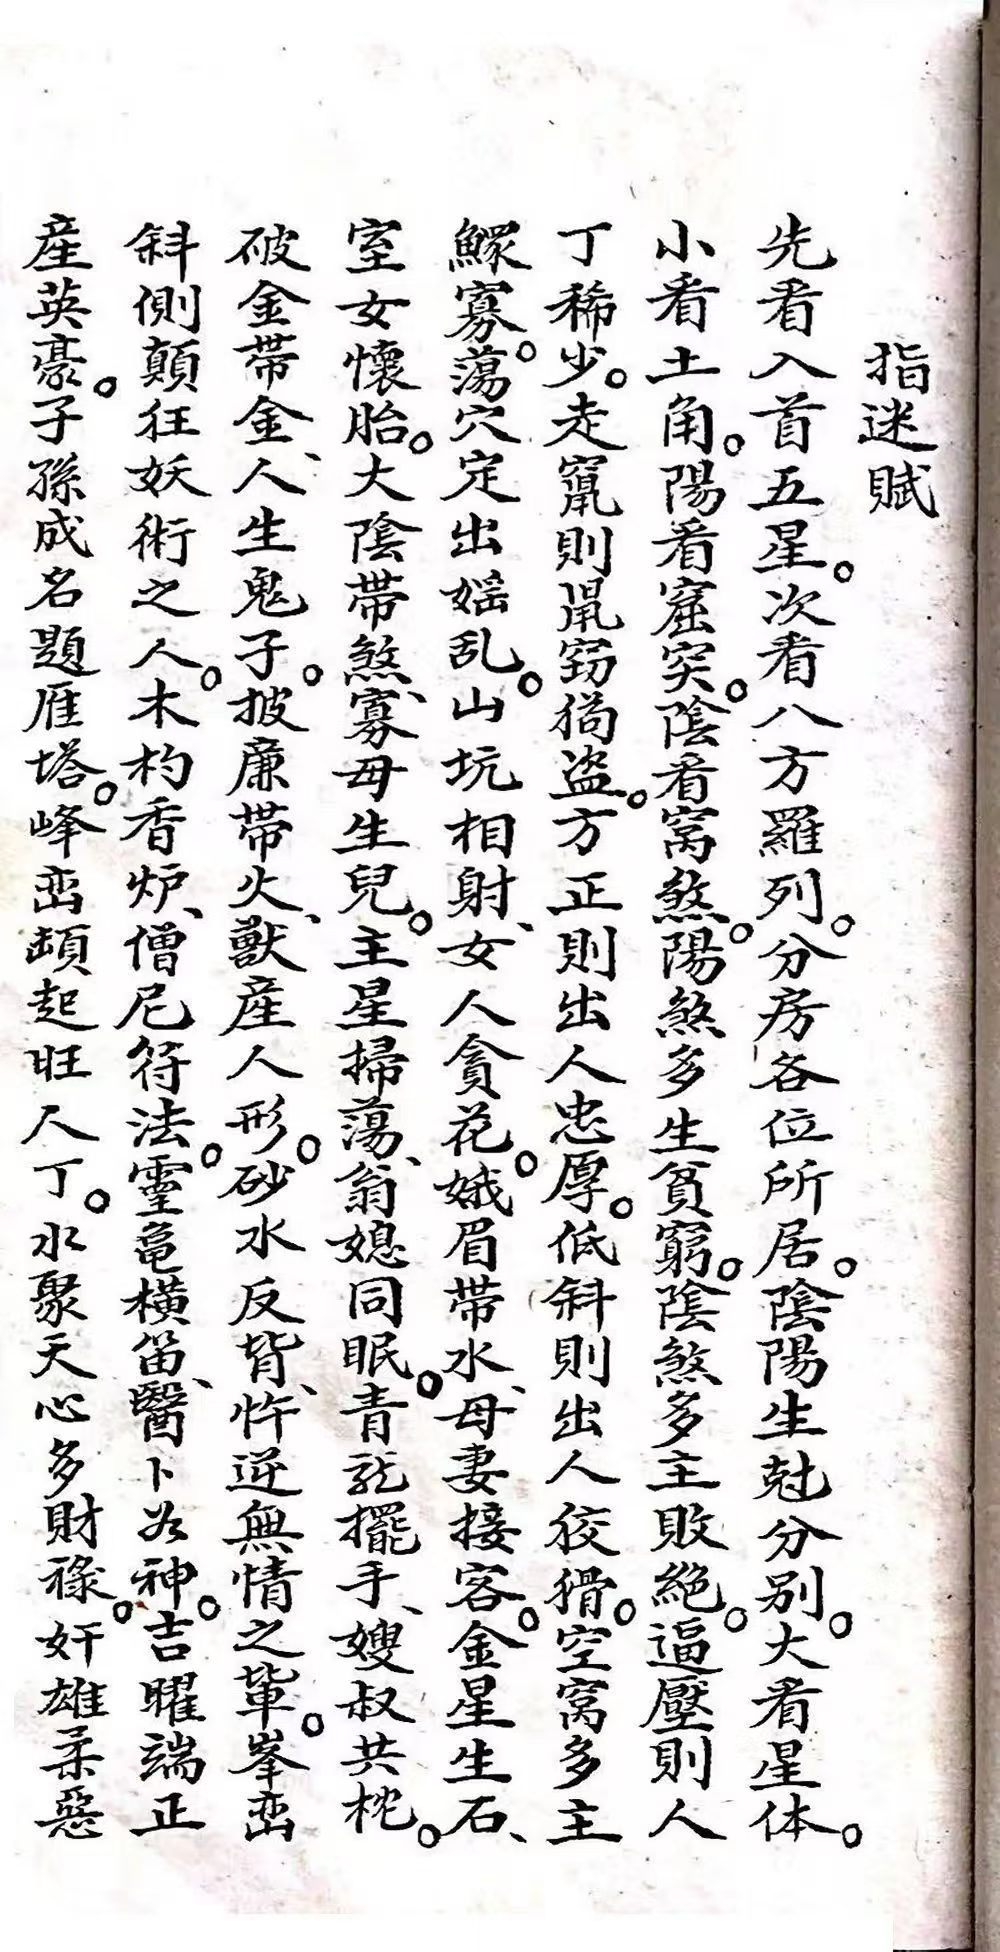 指迷賦
先看入首五星。次看八方羅列。分房各位所居。陰陽生尅分别。大看星体。
小看土角。陽看窟突。陰看窝煞。陽煞多生貧窮。陰煞多主敗絕。逼壓則人
丁稀少。走竄則鼠窃狗盗。方正則出人忠厚。低斜則出人狡猾。空窝多主
鰥寡。蕩穴定出婬乱。山坑相射、女人貪花。娥眉帶水、母妻接客。金星生石、
室女懷胎。大陰帶煞、寡母生兒。主星掃蕩、翁媳同眠。青龍擺手、嫂叔共枕。
破金帶金、人生鬼子。披廉帶火、獸産人形。砂水反背、忤逆無情之輩。峯峦
斜側顛狂妖術之人。木杓香炉、僧尼符法。靈龟横笛、醫卜神。吉曜端正
産英豪。子孫成名題雁塔。峰峦頓起旺人丁。水聚天心多財祿。奸雄柔惡